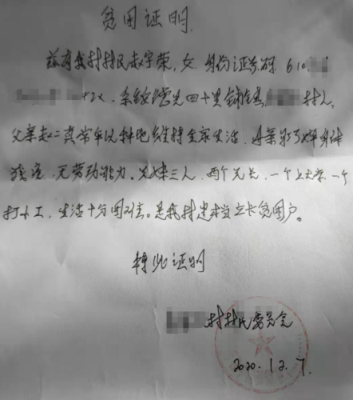 贫困证明
兹有我村村民赵宇荣，女，身份证号码 610
系 四十里铺镇 村人，
父亲赵二 常年以种地维持全家生活，母亲 身体
残疾，无劳动能力，兄妹三人，两个兄长，一个上大学，一个
打工，生活十分困难。是我村建档立卡贫困户。
特此证明
村村民委员会
2020.12.7